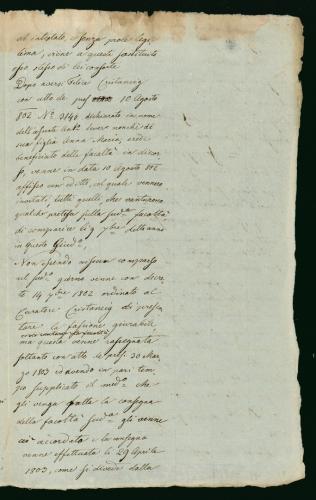 ab intestato, e senza prole legit-
tima, viene a questi sostituito
esso stesso di lei consorte
Dopo avere Felice Cristancig
con atto de 10 Agosto
802 N.º 3140 dichiarato in nome
dell'assente nonchè di
sua figlia Anna Maria, erede
beneficiato della facoltà in discor-
so, venne in data 10 Agosto 802
affisso un editto, col quale vennero
invitati tutti quelli, che vantassero
qualche pretesa sulla sud.ª facoltà
di comparire li 9 7bre dell'anno
in questo Giud.º,
Non essendo nessuno comparso
nel sud.º giorno venne con decre-
to 14 7bre 1802 ordinato al
Curatore Cristancig di presen-
tare la fassione giurabile,
ma questa venne rassegnata
soltanto con atto de pres: 30 Mar-
zo 1803 ed avendo in pari tem-
po supplicato il med.º che
gli venga fatta la consegna
della facoltà sud.ª gli venne
ciò accordato e la consegna
venne effettuata li 29 Aprile
1803, come si divede dalla